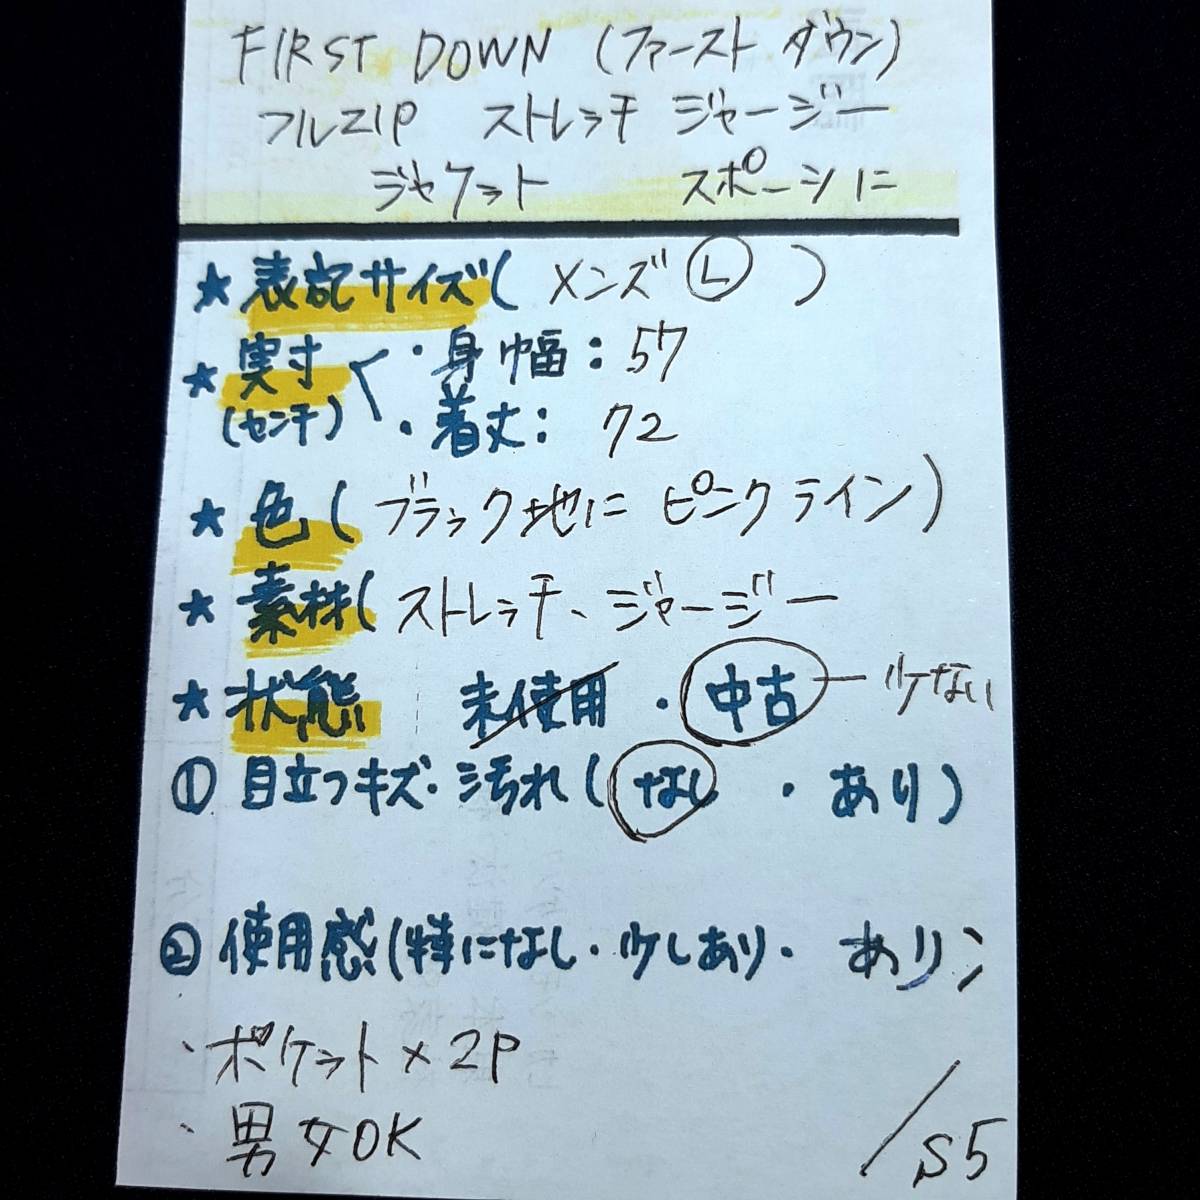 FIRST DOWN (ファースト ダウン)
フルZIP ストレッチ ジャージー
ジャケット スポーツに
★ 表記サイズ( メンズ Ⓛ )
★ 実寸 < ・身幅：57
(センチ) ・着丈：72
★ 色( ブラック地に ピンクライン)
★ 素材( ストレッチ、ジャージー
★ 状態 未使用・中古 ー 少ない
① 目立つキズ・汚れ(なし ・ あり)
② 使用感(特になし・少しあり・ あり)
・ポケット×2P
・男女OK
/S5